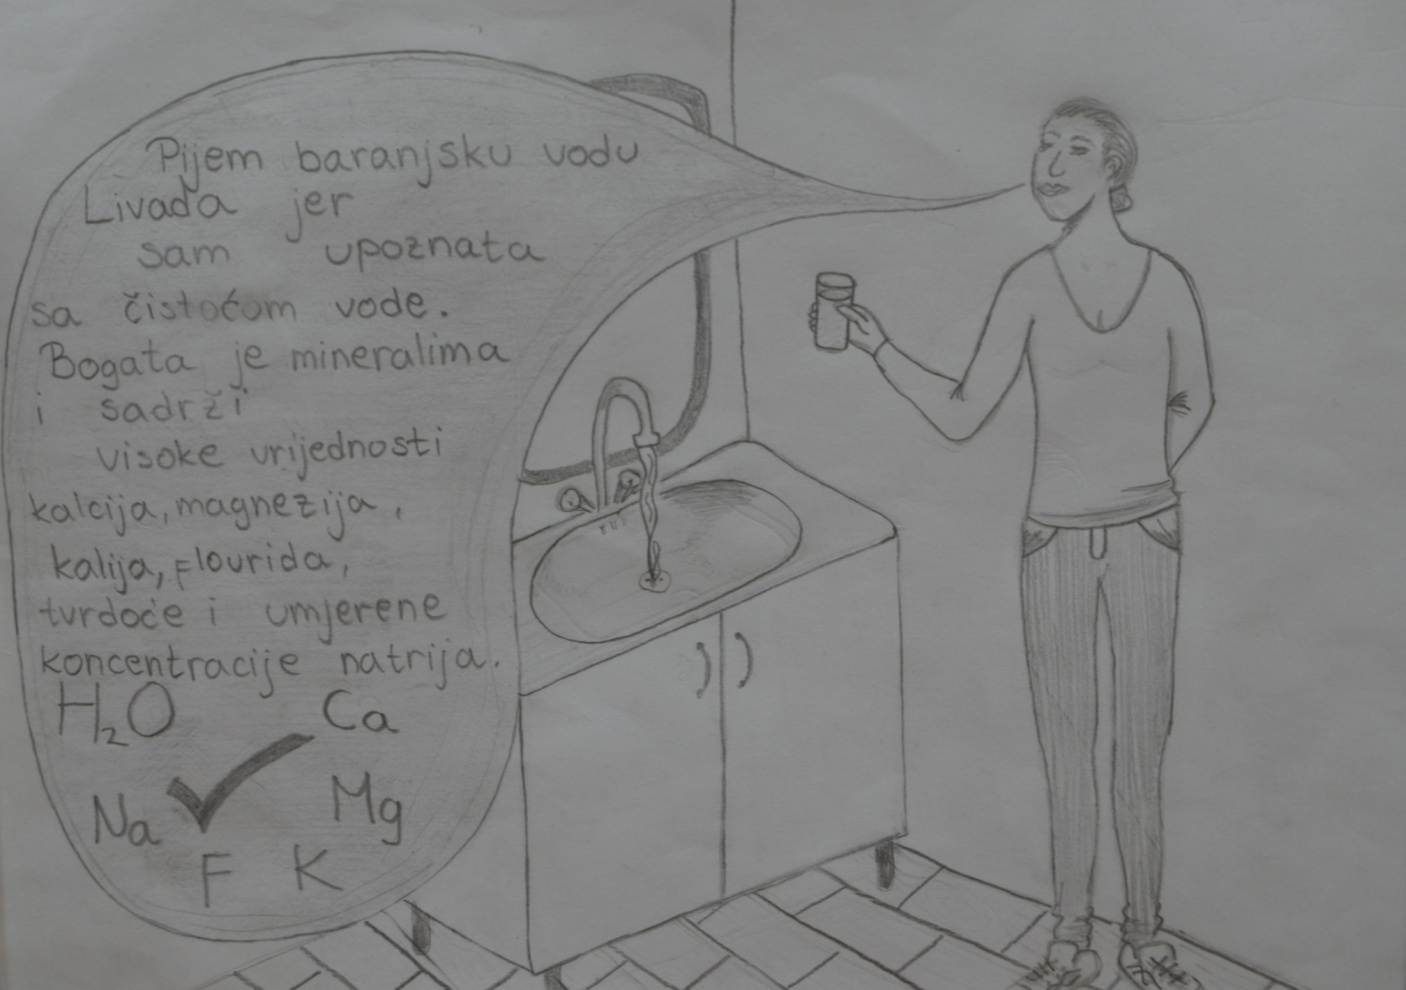 Pijem baranjsku vodu
Livada jer
sam upoznata
sa čistoćom vode.
Bogata je mineralima
i sadrži
visoke vrijednosti
kalcija, magnezija,
kalija, flourida,
tvrdoće i umjerene
koncentracije natrija.
H₂O Ca
Na Mg
F K